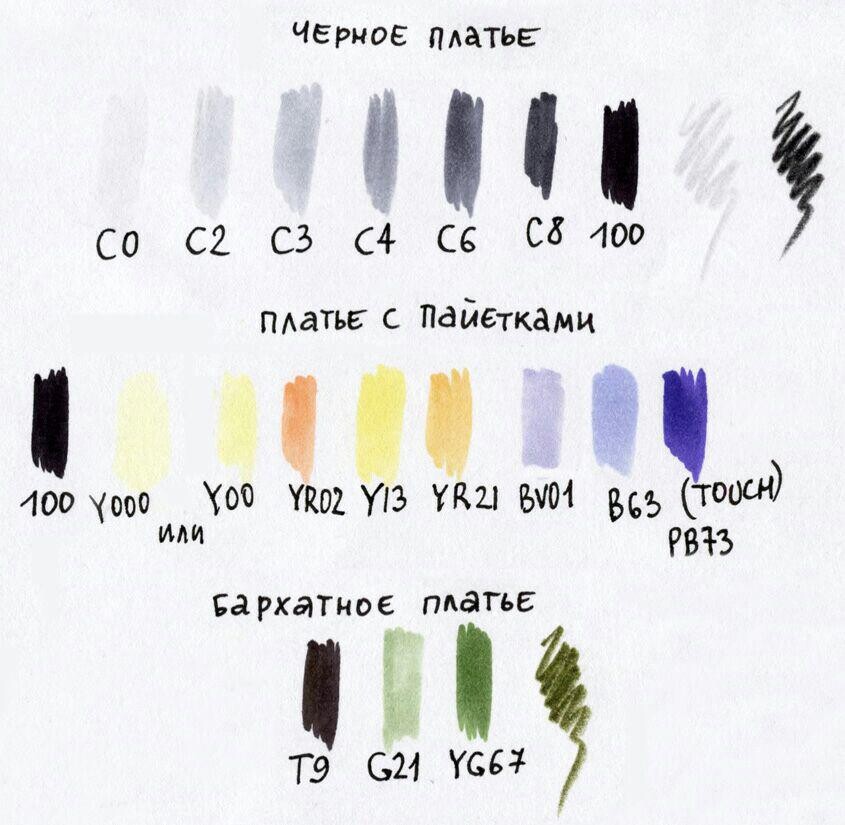 ЧЕРНОЕ ПЛАТЬЕ
C0 C2 C3 C4 C6 C8 100
ПЛАТЬЕ С ПАЙЕТКАМИ
100 Y000 или Y00 YR02 Y13 YR21 BV01 B63 (TOUCH) PB73
БАРХАТНОЕ ПЛАТЬЕ
T9 G21 YG67